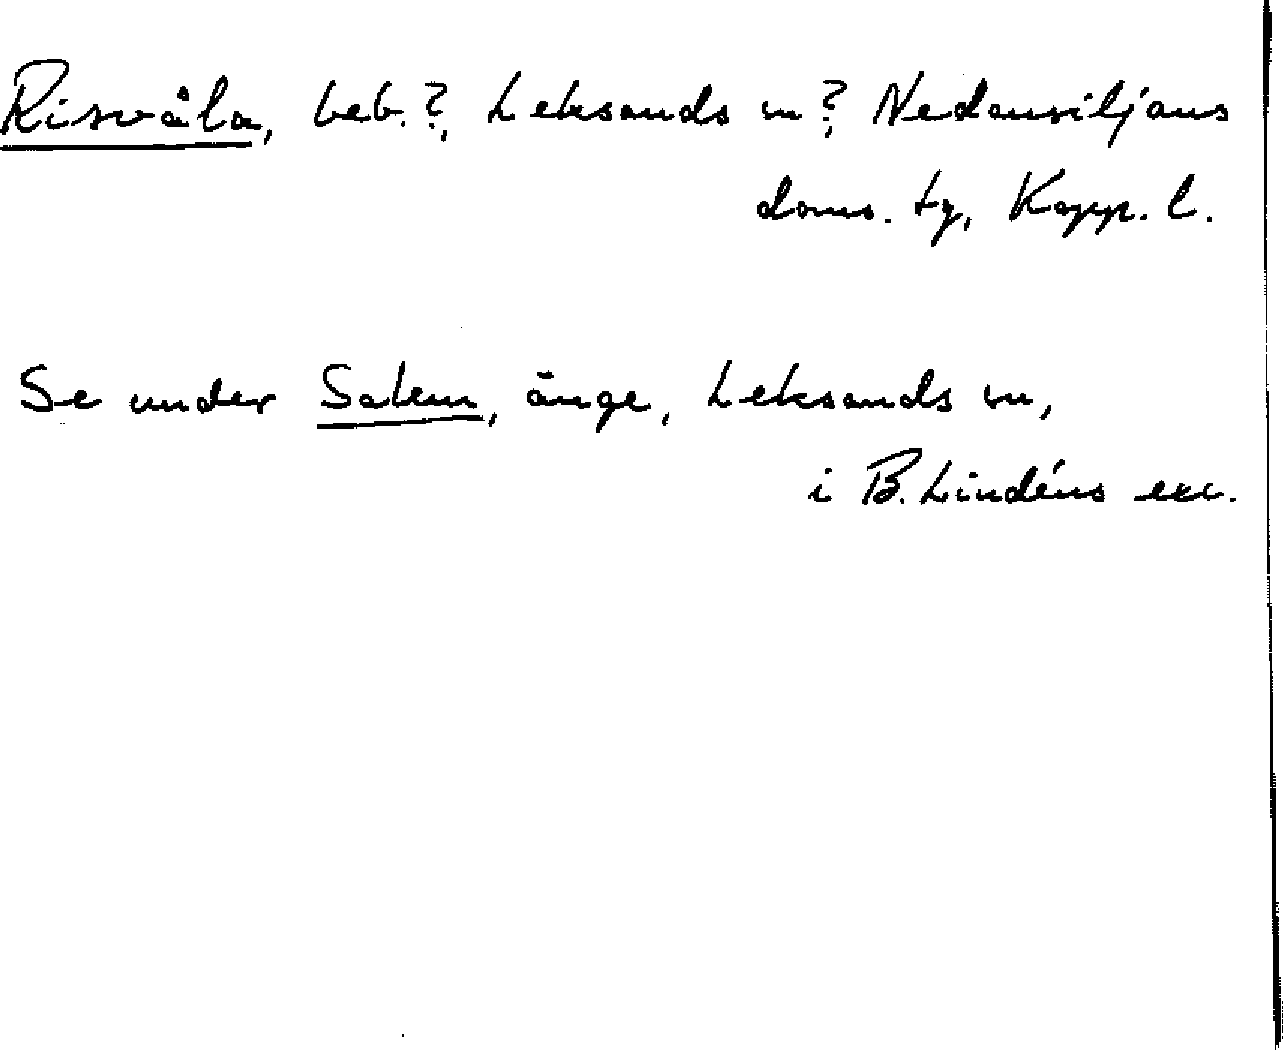 Risvåla, beb.?, Leksands sn? Nedansiljans
doms. tg, Kopp. l.
Se under Salem, änge, Leksands sn,
i B. Lindéns exc.